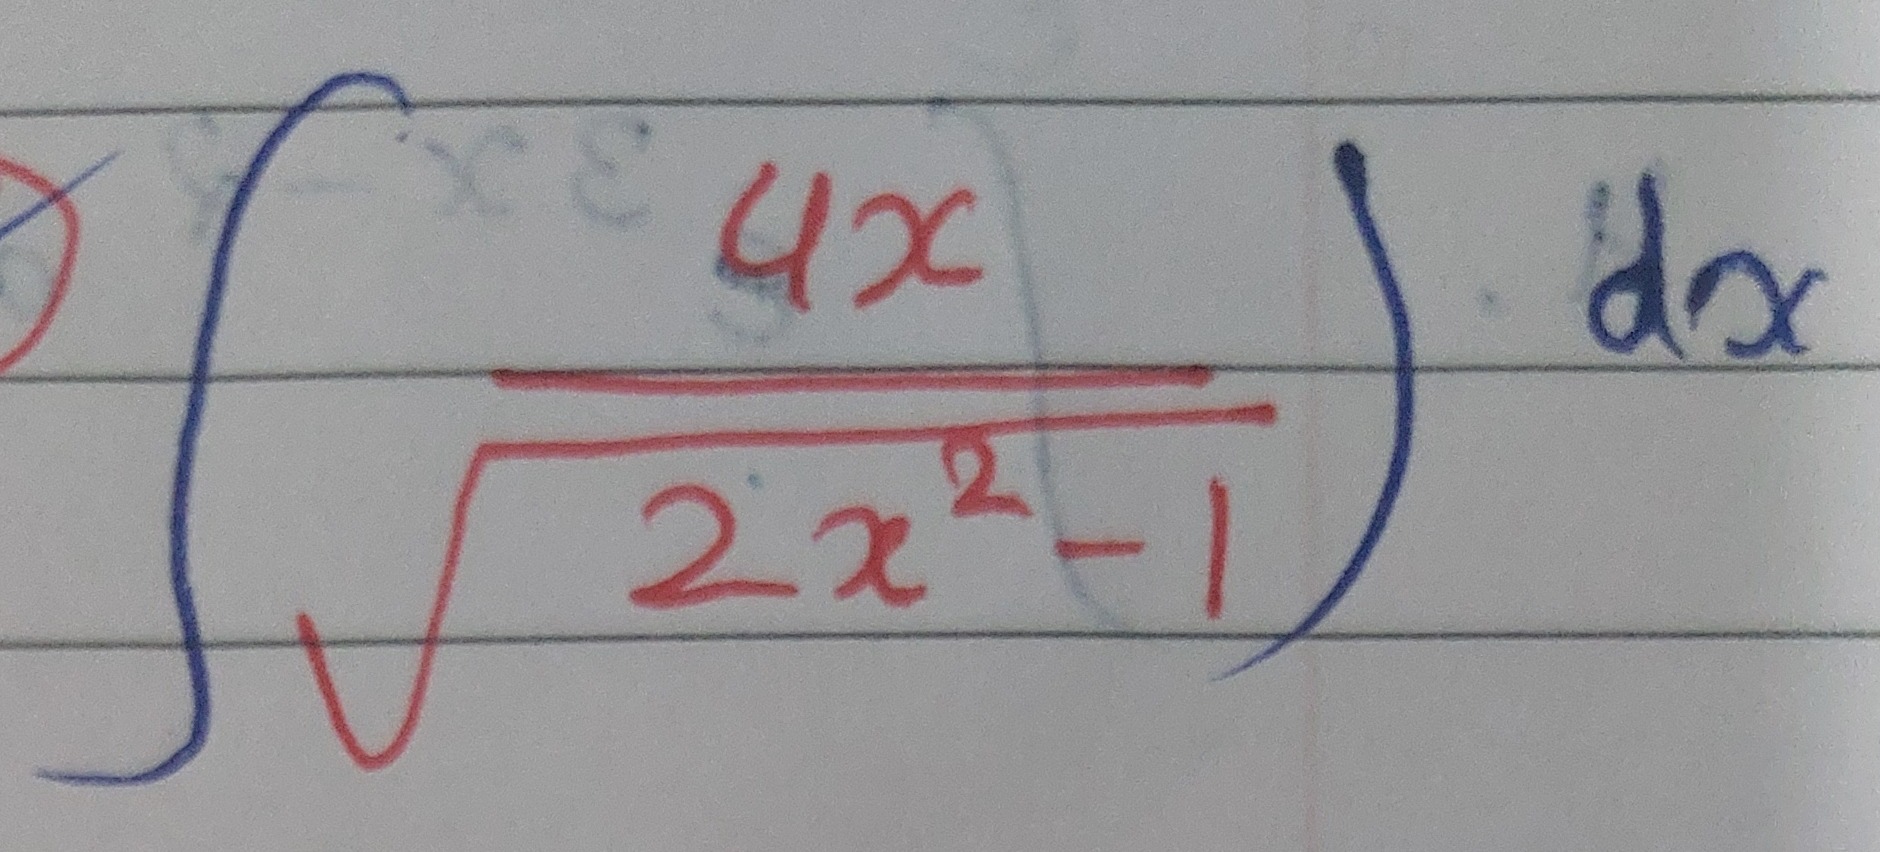 ∫ 4x / √(2x² - 1) ) dx